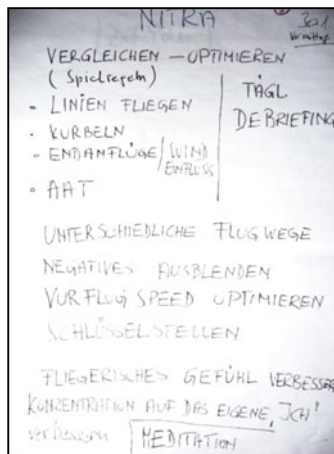 NITRA
VERGLEICHEN – OPTIMIEREN
(Spielregeln)
• LINIEN FLIEGEN
• KURBELN
• ENDANFLÜGE / WIND EINFLUSS
• AAT
TÄGL.
DEBRIEFING
UNTERSCHIEDLICHE FLUGWEGE
NEGATIVES AUSBLENDEN
VORFLUG SPEED OPTIMIEREN
SCHLÜSSELSTELLEN
FLIEGERISCHES GEFÜHL VERBESSER
KONZENTRATION AUF DAS EIGENE „ICH"
verbessern MEDITATION